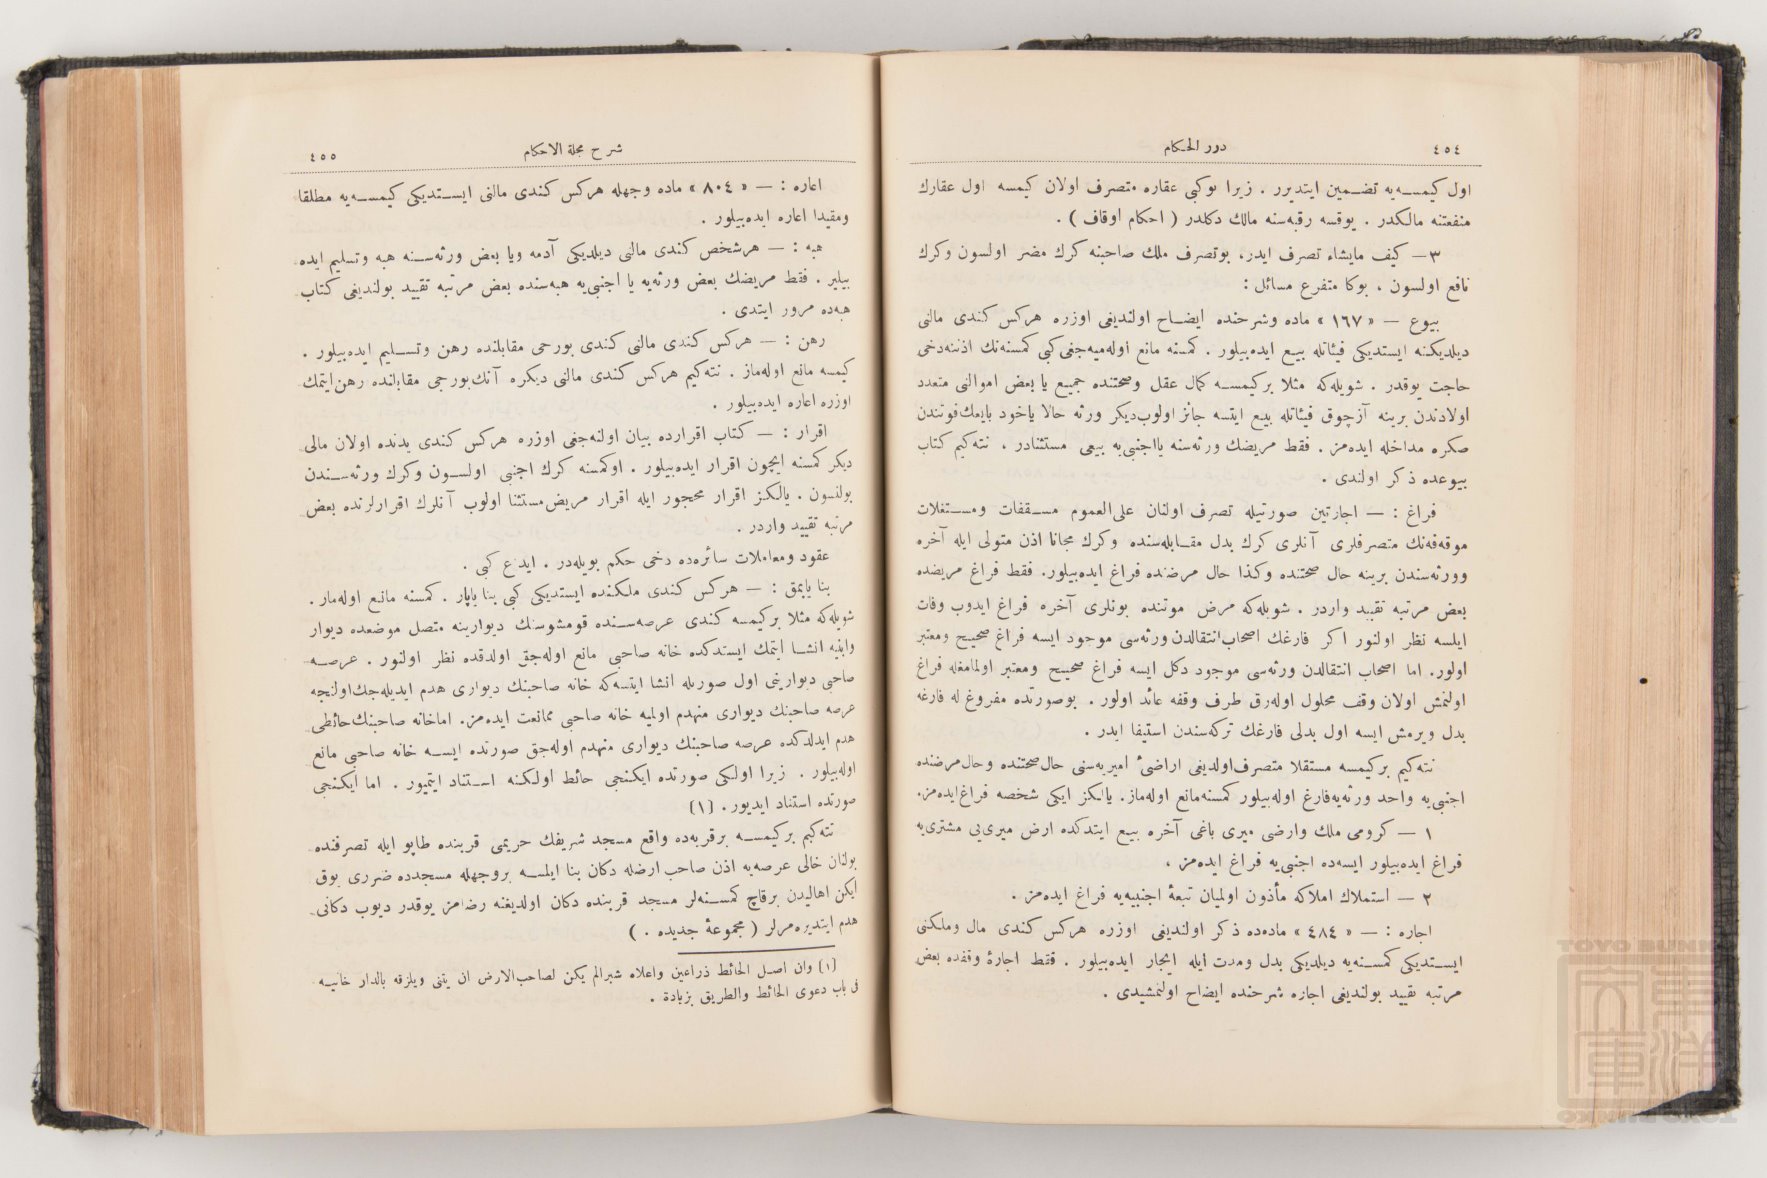 ٤٥٤
درر الحكام
اول كیمسه‌یه تضمین ایتدیرر . زیرا بوكبی عقاره متصرف اولان كیمسه اول عقارك
منفعتنه مالكدر . یوقسه رقبه‌سنه مالك دكلدر ( احكام اوقاف ) .
٣ — كیف مایشاء تصرف ایدر، بوتصرف ملك صاحبنه كرك مضر اولسون وكرك
نافع اولسون ، بوكا متفرع مسائل :
بیوع — « ١٦٧ » ماده وشرحنده ایضاح اولندیغی اوزره هركس كندی مالنی
دیلدیكنه ایستدیكی فیئاتله بیع ایده‌بیلور . كمسنه مانع اوله‌میه‌جغی كبی كمسنه‌نك اذننه‌دخی
حاجت یوقدر . شویله‌كه مثلا بركیمسه كمال عقل وصحتنده جمیع یا بعض اموالنی متعدد
اولادندن برینه آزچوق فیئاتله بیع ایتسه جائز اولوب‌دیكر ورثه حالا یاخود بایعك‌فوتندن
صكره مداخله ایده‌مز . فقط مریضك ورثه‌سنه یااجنبی‌یه بیعی مستثنادر ، نته‌كیم كتاب
بیوعده ذكر اولندی .
فراغ : — اجارتین صورتیله تصرف اولنان علی‌العموم مسقفات ومستغلات
موقوفه‌نك متصرفلری آنلری كرك بدل مقابله‌سنده وكرك مجانا اذن متولی ایله آخره
وورثه‌سندن برینه حال صحتنده وكذا حال مرضنده فراغ ایده‌بیلور. فقط فراغ مریضده
بعض مرتبه تقیید واردر . شویله‌كه مرض موتنده بونلری آخره فراغ ایدوب وفات
ایلسه نظر اولنور اكر فارغك اصحاب‌انتقالدن ورثه‌سی موجود ایسه فراغ صحیح ومعتبر
اولور. اما اصحاب انتقالدن ورثه‌سی موجود دكل ایسه فراغ صحیح ومعتبر اولمامغله فراغ
اولنمش اولان وقف محلول اوله‌رق طرف وقفه عائد اولور . بوصورتده مفروغ له فارغه
بدل ویرمش ایسه اول بدلی فارغك تركه‌سندن استیفا ایدر .
نته‌كیم بركیمسه مستقلا متصرف‌اولدیغی اراضئ امیریه‌سنی حال‌صحتنده وحال‌مرضنده
اجنبی‌یه واحد ورثه‌یه‌فارغ اوله‌بیلور كمسنه‌مانع اوله‌ماز. یالكز ایكی شخصه فراغ‌ایده‌مز.
١ — كرومی ملك وارضی میری باغی آخره بیع ایتدكده ارض میری‌یی مشتری‌یه
فراغ ایده‌بیلور ایسه‌ده اجنبی‌یه فراغ ایده‌مز ،
٢ — استملاك املاكه مأذون اولمیان تبعهٔ اجنبیه‌یه فراغ ایده‌مز .
اجاره : — « ٤٨٤ » ماده‌ده ذكر اولندیغی اوزره هركس كندی مال وملكنی
ایستدیكی كمسنه‌یه دیلدیكی بدل ومدت ایله ایجار ایده‌بیلور . فقط اجارهٔ وقفده بعض
مرتبه تقیید بولندیغی اجاره شرحنده ایضاح اولنمشیدی .
شرح مجلة الاحكام
٤٥٥
اعاره : — « ٨٠٤ » ماده وجهله هركس كندی مالنی ایستدیكی كیمسه‌یه مطلقا
ومقیدا اعاره ایده‌بیلور .
هبه : — هرشخص كندی مالنی دیلدیكی آدمه ویا بعض ورثه‌سنه هبه وتسلیم ایده
بیلیر . فقط مریضك بعض ورثه‌یه یا اجنبی‌یه هبه‌سنده بعض مرتبه تقیید بولندیغی كتاب
هبه‌ده مرور ایتدی .
رهن : — هركس كندی مالنی كندی بورجی مقابلنده رهن وتسلیم ایده‌بیلور .
كیمسه مانع اوله‌ماز . نته‌كیم هركس كندی مالنی دیكره آنك‌بورجی مقابلنده رهن‌ایتمك
اوزره اعاره ایده‌بیلور .
اقرار : — كتاب اقرارده بیان اولنه‌جغی اوزره هركس كندی یدنده اولان مالی
دیكر كمسنه ایچون اقرار ایده‌بیلور . اوكمسنه كرك اجنبی اولسون وكرك ورثه‌سندن
بولنسون . یالكز اقرار محجور ایله اقرار مریض مستثنا اولوب آنلرك اقرارلرنده بعض
مرتبه تقیید واردر .
عقود ومعاملات سائره‌ده دخی حكم بویله‌در . ایداع كبی .
بنا یاپمق : — هركس كندی ملكنده ایستدیكی كبی بنا یاپار . كمسنه مانع اوله‌ماز .
شویله‌كه مثلا بركیمسه كندی عرصه‌سنده قومشوسنك دیوارینه متصل موضعده دیوار
وابنیه انشا ایتمك ایستدكده خانه صاحبی مانع اوله‌جق اولدقده نظر اولنور . عرصه
صاحبی دیوارینی اول صورتله انشا ایتسه‌كه خانه صاحبنك دیواری هدم ایدیله‌جك‌اولنجه
عرصه صاحبنك دیواری منهدم اولمیه خانه صاحبی ممانعت ایده‌مز. اماخانه صاحبنك‌حائطی
هدم ایدلدكده عرصه صاحبنك دیواری منهدم اوله‌جق صورتده ایسه خانه صاحبی مانع
اوله‌بیلور . زیرا اولكی صورتده ایكنجی حائط اولكنه استناد ایتمیور . اما ایكنجی
صورتده استناد ایدیور. (١)
نته‌كیم بركیمسه برقریه‌ده واقع مسجد شریفك حریمی قربنده طاپو ایله تصرفنده
بولنان خالی عرصه‌یه اذن صاحب ارضله دكان بنا ایلسه بروجهله مسجدده ضرری یوق
ایكن اهالیدن برقاچ كمسنه‌لر مسجد قربنده دكان اولدیغنه رضامز یوقدر دیوب دكانی
هدم ایتدیره‌مزلر ( مجموعهٔ جدیده . )
(١) وان اصل الحائط ذراعین واعلاه شبرالم یكن لصاحب‌الارض ان یبنی ویلزقه بالدار خانیه
فی باب دعوی الحائط والطریق بزیادة .
TOYO BUNKO
東洋文庫
TOYO BUNKO